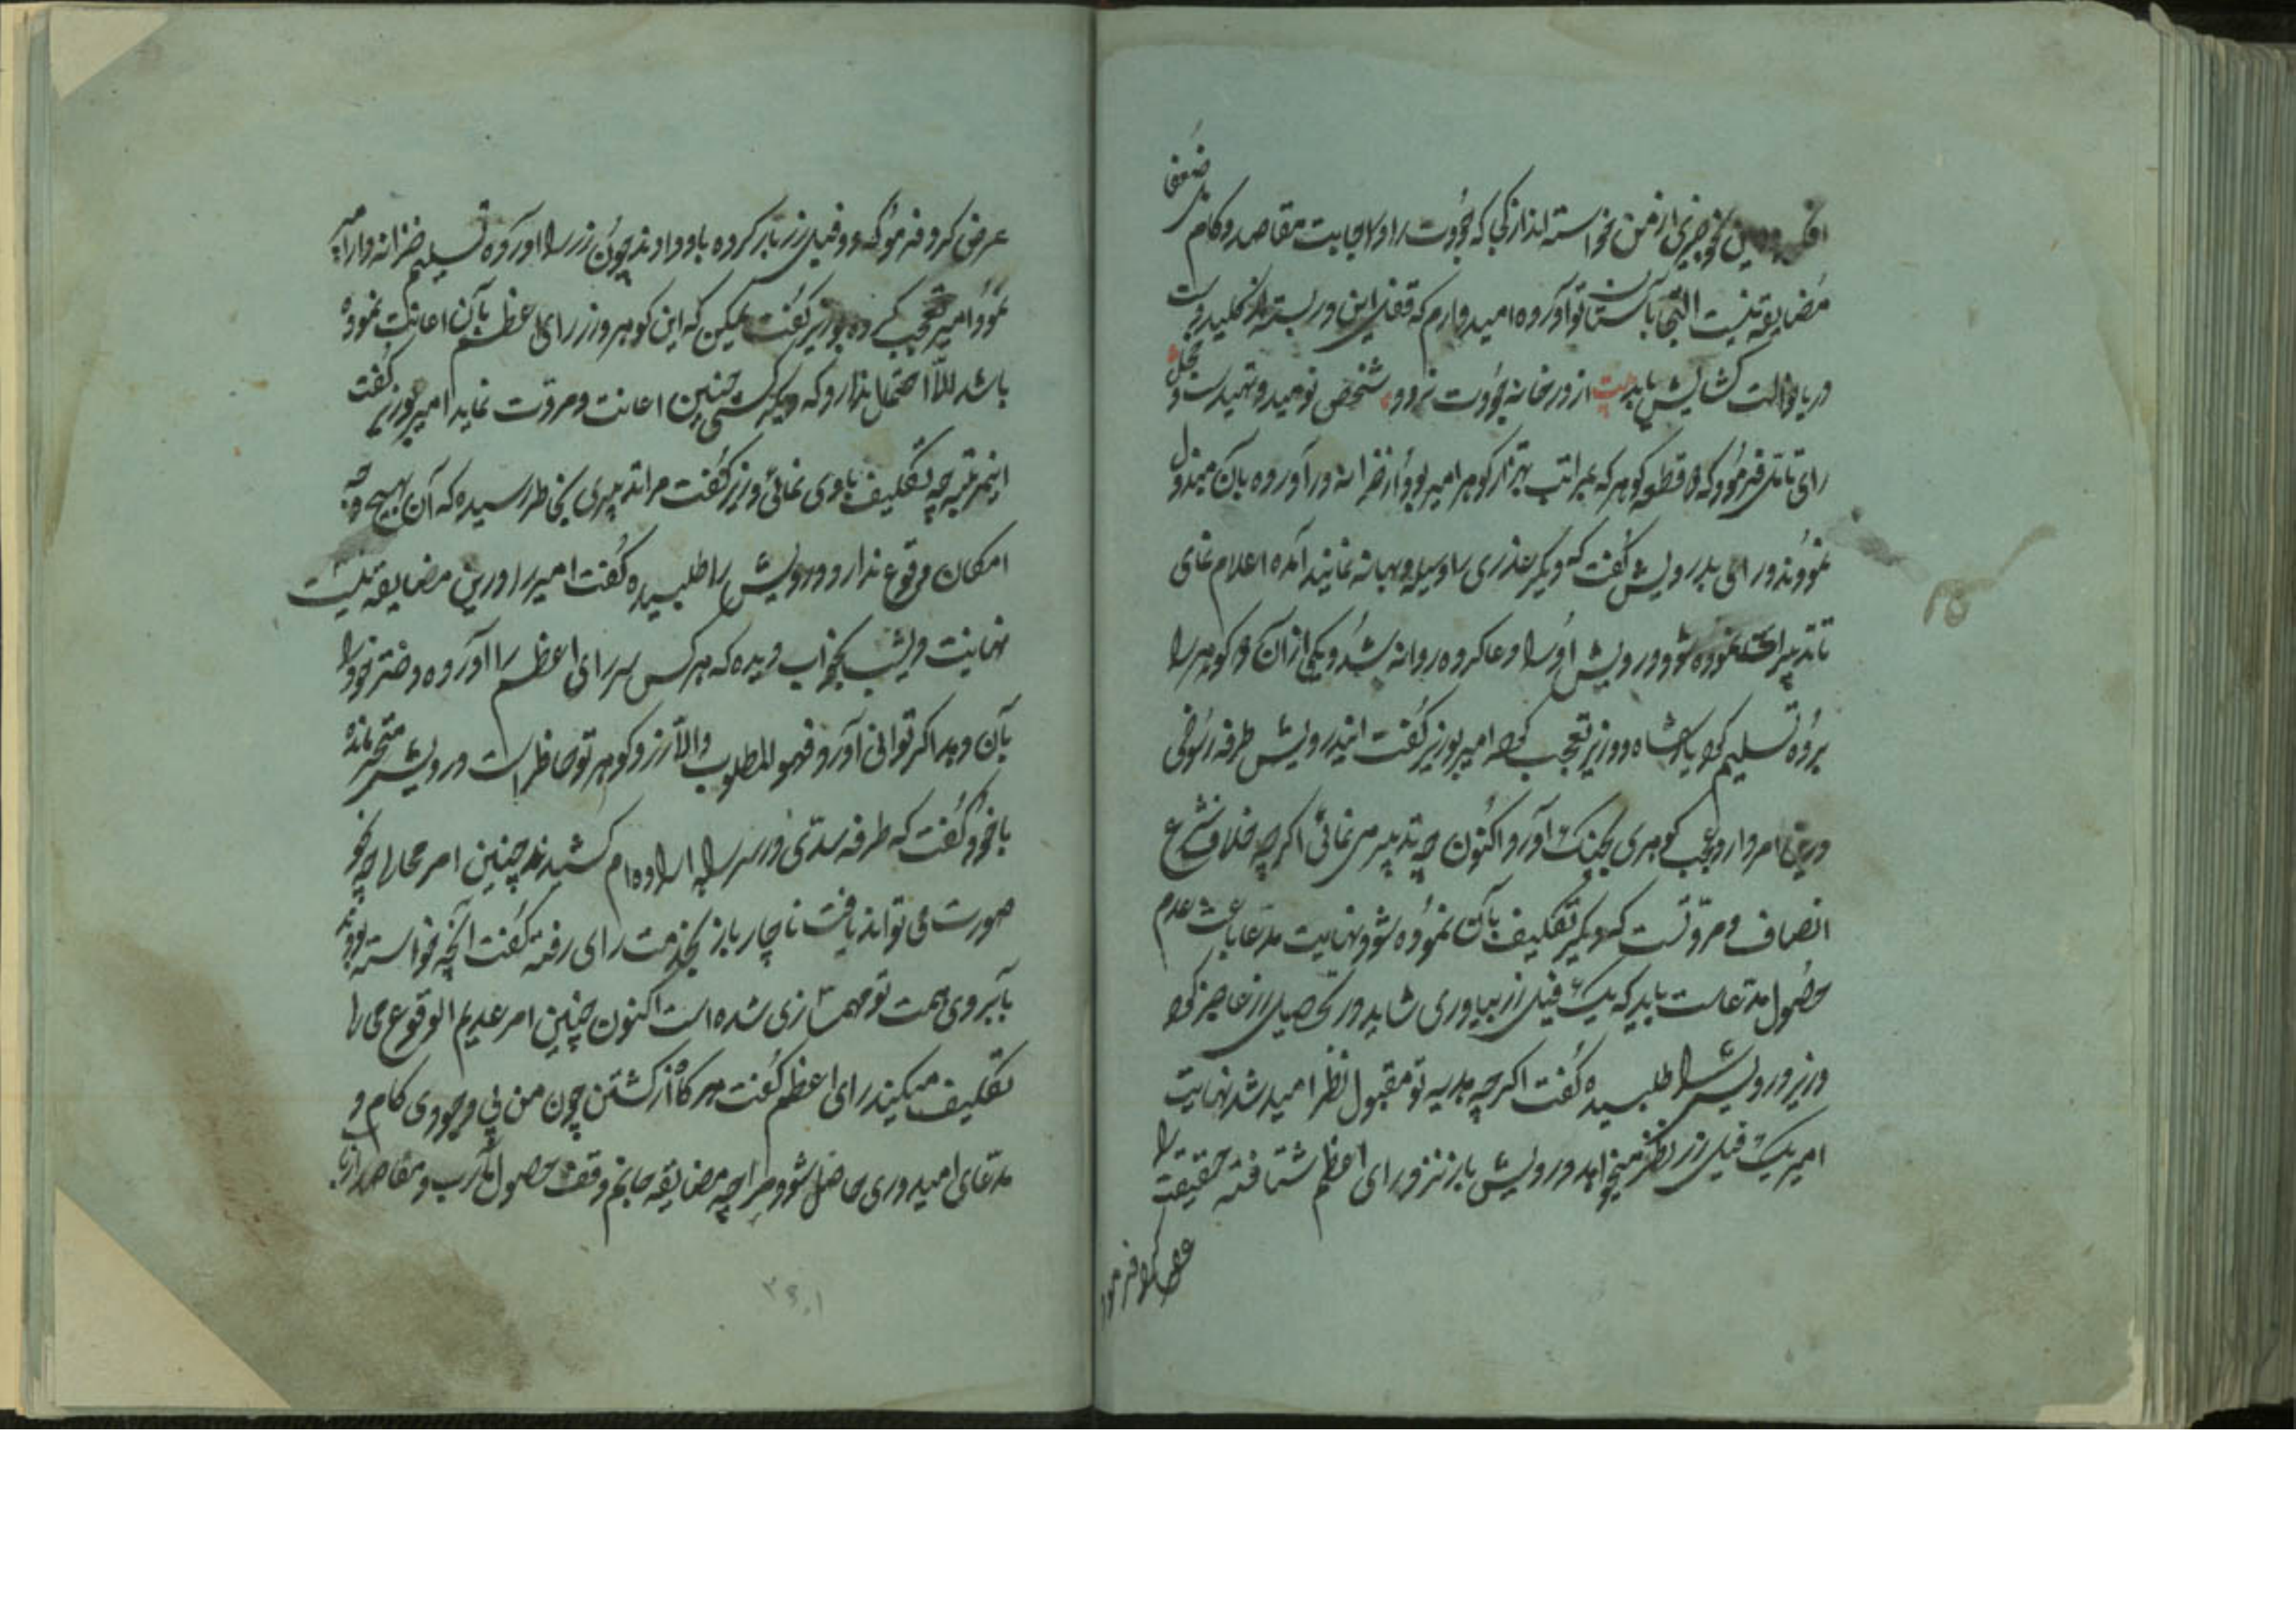 چیزی از من نخواسته اند از آنجا که جودت را در اجابت مقاصد و کام ضعفی
مضایقه نیست التجا بآستان تو آورده امیدوارم که قفل این در بسته از کلید
کشایش یابد بیت از در خانه جودت نرود شخصی نومید و تهیدست و خجل
رای تامل فرمود که دو قطعه کوهر که بمراتب بهتر از کوهر امیر بود از خزانه در آورده بآن مبذول
نمودند و رای بدرویش گفت که دیگر عذری را وسیله و بهانه نمایند آمده اعلام نمای
تا تدبیر آن نموده شود درویش او را دعا کرده روانه شد و یکی از آن دو کوهر را
برده تسلیم کرد پادشاه و وزیر تعجب کرده امیر بوزیر گفت این درویش طرفه رسوخی
درین امر دارد عجب کوهری بچنک آورد اکنون چه تدبیر می نمائی اگرچه خلاف شرع
انصاف و مروتست که دیگر تکلیف بآن نموده شود نهایت مدعا باعث عدم
حصول مدعاست باید که یک فیل زر بیاوری شاید در تحصیل زر عاجز کردد
وزیر درویش را طلبیده گفت اگرچه هدیه تو مقبول نظر امیر شد نهایت
امیر یک فیل زر نیز میخواهد درویش باز نزد رای اعظم شتافته حقیقت را
عرض کرد فرمود
عرض کرد فرمود که دو فیل زر بار کرده باو دادند چون زر را آورده تسلیم خزانه دار امیر
نمود امیر تعجب کرده بوزیر گفت لیکن که این کوهر و زر رای اعظم بآن اعانت نموده
باشد للّا احتمال ندارد که دیگر کسی چنین اعانت و مروت نماید امیر بوزیر گفت
اینمرتبه چه تکلیف باوی نمائی وزیر گفت مرا تدبیری بخاطر رسیده که آن بهیچ وجه
امکان وقوع ندارد و درویش را طلبیده گفت امیر را درین مضایقه نیست
نهایت دیشب بخواب دیده که هر کس سر رای اعظم را آورده دختر خود را
بآن دهد اگر توانی آورد فهو المطلوب والا زر و کوهر تو حاضر است درویش متحیر مانده
با خود گفت که طرفه سدّی در سر راه اراده ام کشیدند چنین امر محال چه نحو
صورت می تواند یافت ناچار باز بخدمت رای رفته گفت آنچه خواسته بودند
بآبروی همت تو مهمسازی شده است اکنون چنین امر عدیم الوقوع می را
تکلیف میکنند رای اعظم گفت هر گاه از کشتن چون من بی وجودی کام و
مدعای امیدواری حاصل شود مرا چه مضایقه جانم وقف حصول مآرب و مقاصد ارباب